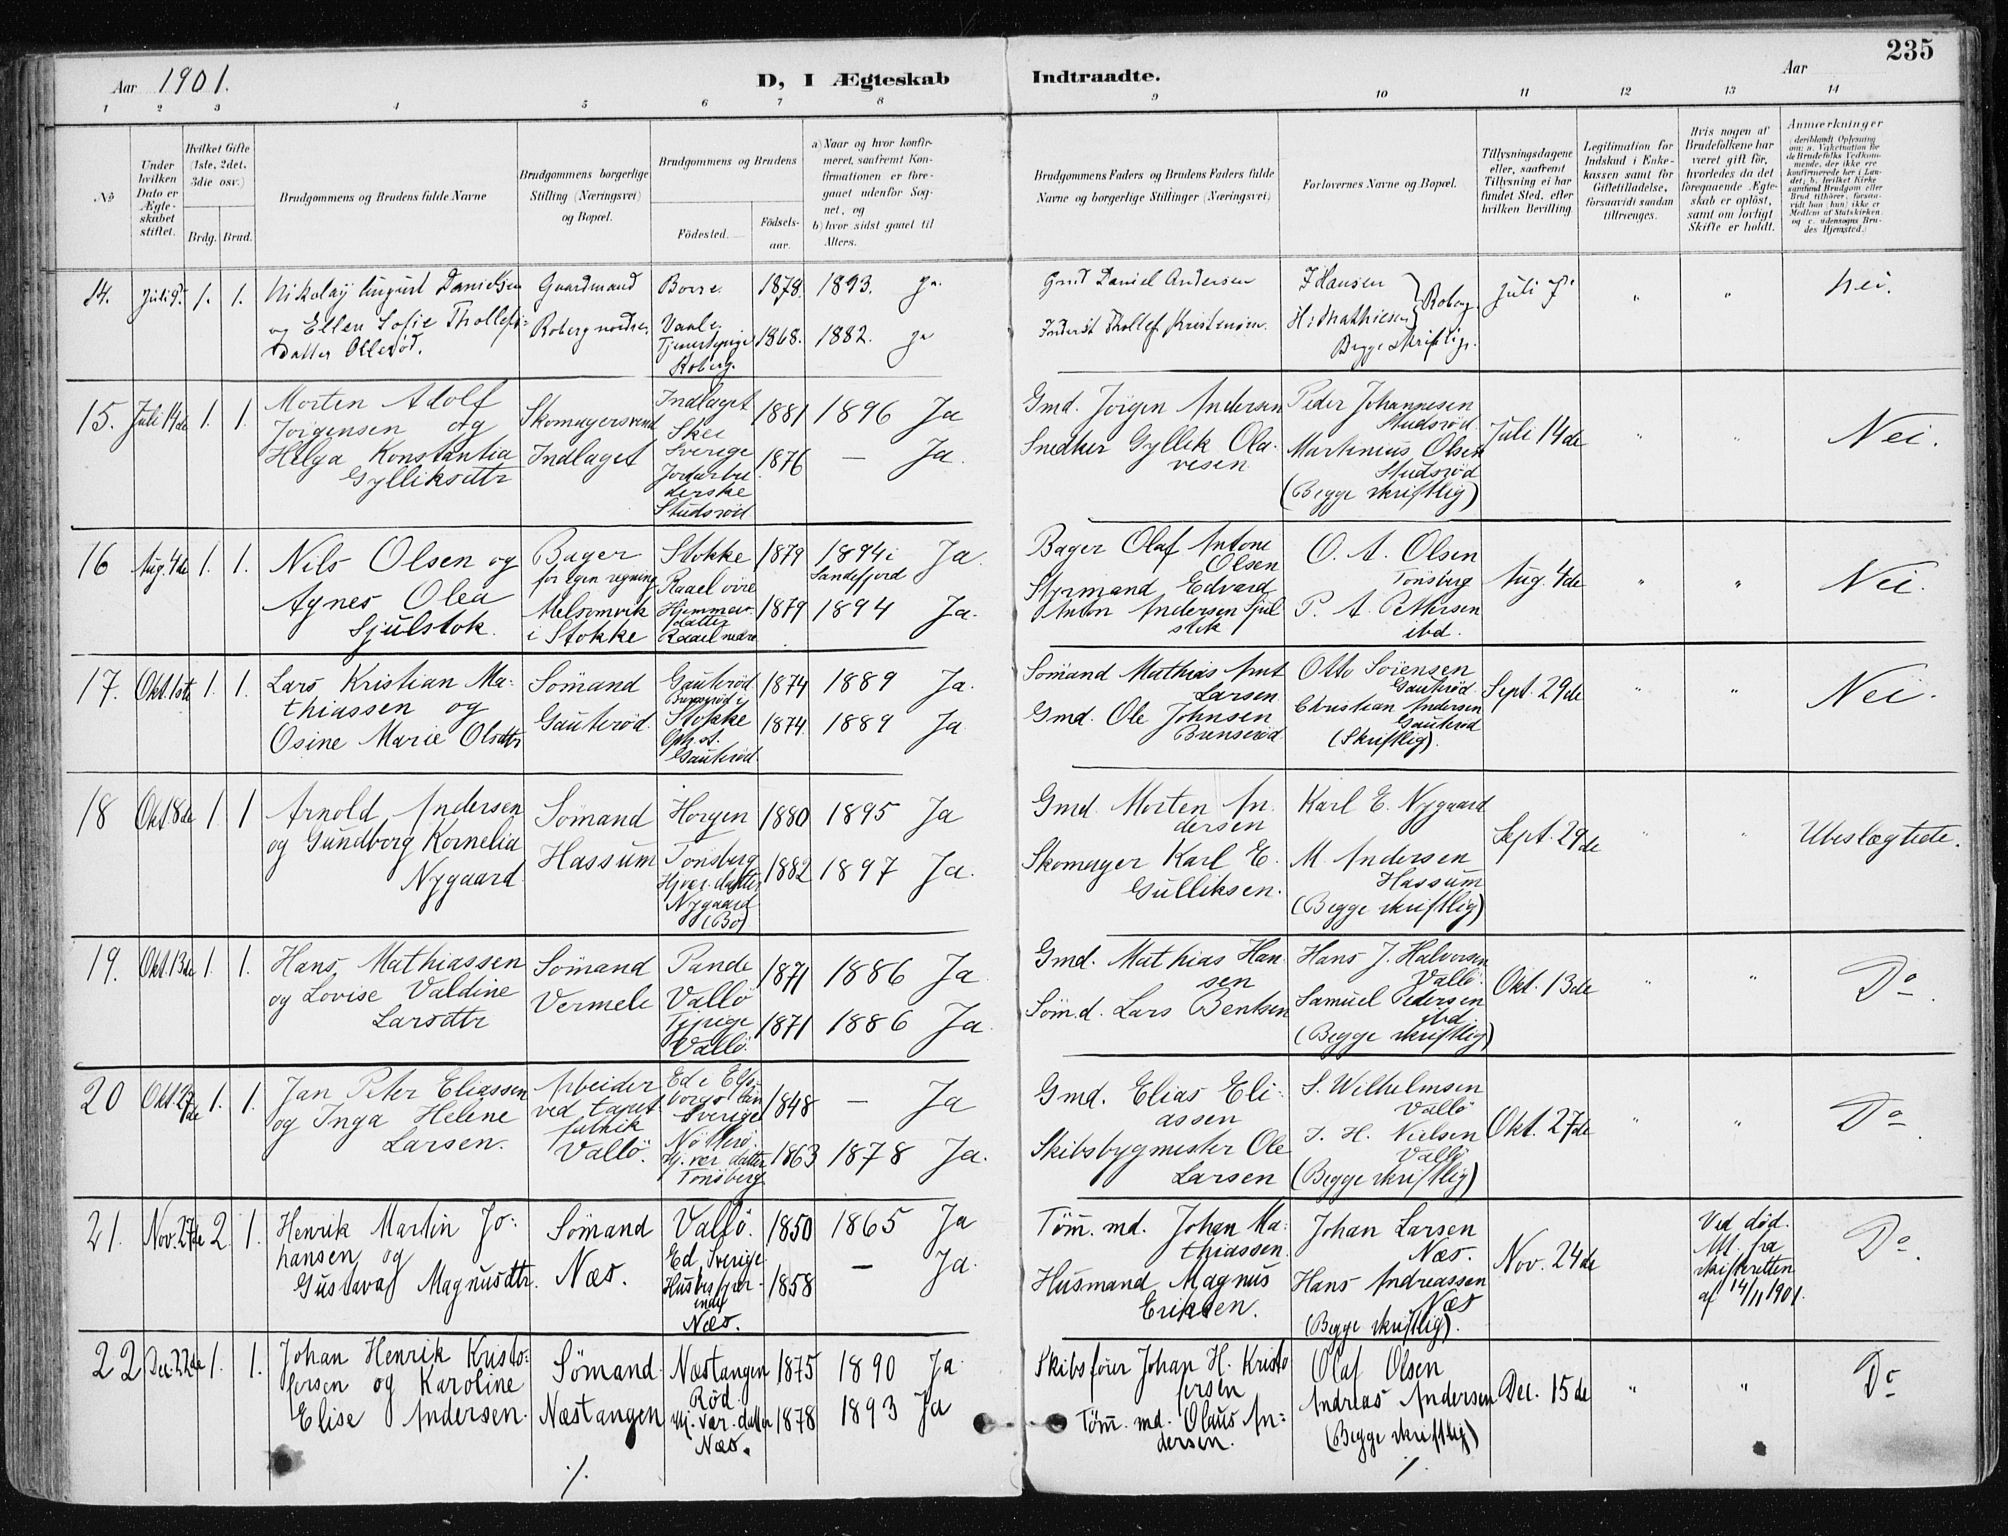 235
Aar 1901.
D, I Ægteskab Indtraadte.
Aar
1 2 3 4 5 6 7 8 9 10 11 12 13 14
No
Under hvilken Dato er Ægteskabet stiftet.
Hvilket Gifte (1ste, 2det, 3die osv.)
Brdg. Brud.
Brudgommens og Brudens fulde Navne
Brudgommens borgerlige Stilling (Næringsvei) og Bopæl.
Brudgommens og Brudens
Fødested. Fødsels-aar.
a) Naar og hvor konfirmeret, saafremt Konfirmationen er foregaaet udenfor Sognet, og
b) hvor sidst gaaet til Alters.
Brudgommens Faders og Brudens Faders fulde Navne og borgerlige Stillinger (Næringsvei)
Forlovernes Navne og Bopæl.
Tillysningsdagene eller, saafremt Tillysning ei har fundet Sted, efter hvilken Bevilling.
Legitimation for Indskud i Enkekassen samt for Giftetilladelse, forsaavidt saadan tiltrænges.
Hvis nogen af Brudefolkene har været gift før, hvorledes da det foregaaende Ægteskab er opløst, samt om lovligt Skifte er holdt.
Anmærkninger
14. Juli 1. 1. Nikolay August Danielsen
og Ellen Sofie Thollefs-
datter Ollerød.
Gaardmand
Roberg nordre.
Borre. 1878. 1893. ja.
Vaale
Roberg. 1868. 1882. ja
Gmd Daniel Andersen
Thollef Kristensen.
J Hansen
H. Mathiesen Roberg
Begge skriftlig.
Juli 7. " " Nei.
15. Juli 14de 1. 1. Morten Adolf
Jörgensen og
Helga Konstantia
Gylliksdtr
Skomagersvend
Indlaget
Indlaget 1881 1896 Ja
Skee
Sverige
Jordarbei
derske
Studsröd 1876 — Ja.
Gmd. Jörgen Andersen
Snedker Gyllik Ola-
vesen
Peder Johannesen
Studsröd
Martinius Olsen
Studsröd
(Begge skriftlig)
Juli 14de " " Nei.
16 Aug. 4de 1. 1. Nils Olsen og
Agnes Olea
Sjulstok.
Bager
for egen regning
Melsomvik
i Stokke
Stokke 1879 1894 i
Sandefjord Ja.
Raael övre
Hjemmev.
datter
Raael nedre 1879 1894 Ja.
Bager Olaf Antone
Olsen
Styrmand Edvard
Anton Andersen Sjul
stok
O. A. Olsen
Tönsberg
P. A. Pettersen
ibd.
Aug. 4de " " Nei.
17. Okt. 1ste 1. 1. Lars Kristian Ma-
thiassen og
Osine Marie Olsdtr
Sömand
Gauteröd
Gauteröd 1874 1889 Ja.
Stokke
Gauteröd 1874 1889 Ja
Sömand Mathias Ant
Larsen
Gmd. Ole Johnsen
Brenseröd
Otto Sörensen
Gauteröd
Christian Andersen
Gauteröd
(Skriftlig).
Sept. 29de " " Nei.
18 Okt. 8de 1 1 Arnold Andersen
og Gundborg Kornelia
Nygaard
Sömand
Hassum
Horgen 1880 1895 Ja
Tönsberg
Hj. vær. datter
Nygaard
(Bo) 1882 1897 Ja.
Gmd. Morten An-
dersen
Skomager Karl E.
Gulliksen.
Karl E. Nygaard
M. Andersen
Hassum
(Begge skriftlig)
Sept. 29de " " Ubeslægtede.
19. Okt. 13de 1. 1. Hans Mathiassen
og Lovise Valdine
Larsdtr
Sömand
Vermele
Pande 1871 1886 Ja
Vallö
Tj. pige
Vallö. 1871 1886 Ja.
Gmd. Mathias Han-
sen
Sömd. Lars Bentsen
Hans J. Halvorsen
Vallö.
Samuel Pedersen
ibd.
(Begge skriftlig)
Okt. 13de " " Do
20 Okt. 27de 1. 1. Jan Peter Eliassen
og Inga Helene
Larsen.
Arbeider
ved tapet
fabrik
Vallö.
Ed i Elfs-
borgs län
Sverige 1848 — Ja
Nötterö.
Hj. vær. datter
Tönsberg 1863 1878 Ja.
Gmd. Elias Eli-
assen
Skibsbygmester Ole
Larsen
S. Wilhelmsen
Vallö
J. H. Nielsen
Vallö
(Begge skriftlig)
Okt. 27de " " Do
21. Nov. 27de 2. 1. Henrik Martin Jo-
hansen og
Gustava Magnusdtr.
Sömand
Næs.
Vallö. 1850 1865 Ja
Ed, Sverige
Husbestyrer-
inde
Næs. 1858 — Ja.
Töm. md. Johan Ma-
thiassen.
Husmand Magnus
Eriksen.
Johan Larsen
Næs.
Hans Andreassen
Næs
(Begge skriftlig).
Nov. 24de
Ved död.
Att. fra
skifteretten
af 14/11 1901.
Do
22 Dec. 22de 1. 1. Johan Henrik Kristo-
fersen og Karoline
Elise Andersen.
Sömand.
Næstangen
Næstangen 1875 1890 Ja
Röd.
Hj. vær. datter
Næs. 1878 1893 Ja
Skibsförer Johan H. Kristo
fersen
Töm. md. Olaus An-
dersen.
Olaf Olsen
Andreas Andersen
(Begge skriftlig)
Dec. 15de " " Do